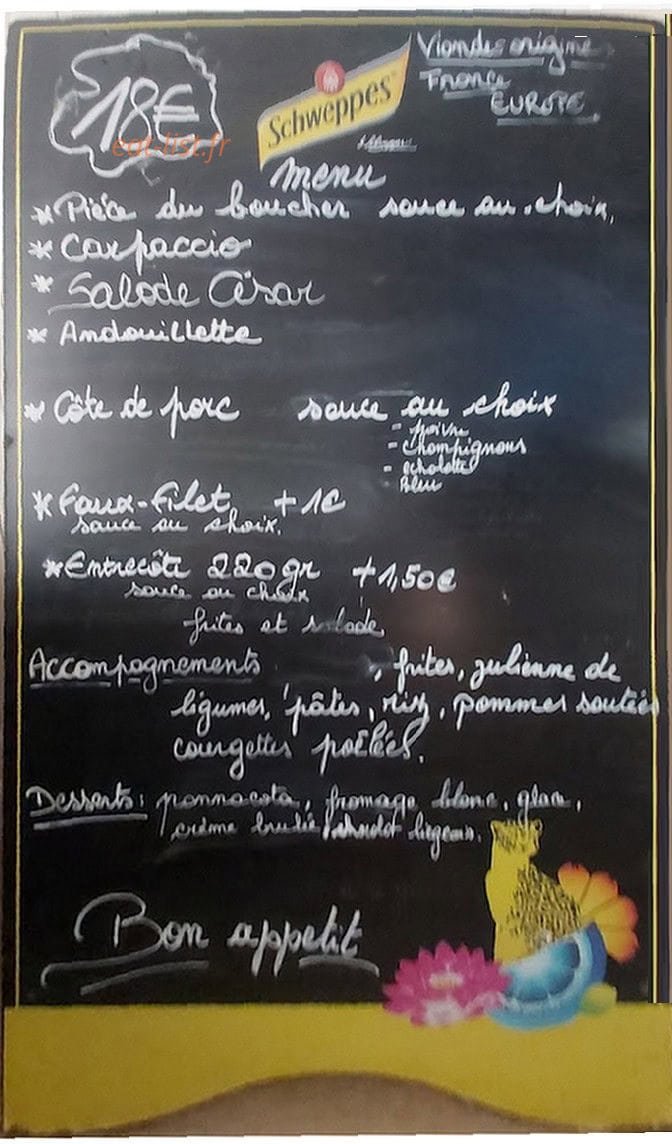 18€
eat-list.fr
Schweppes
Viandes origine
France
EUROPE
menu
* Pièce du boucher sauce au choix.
* Carpaccio
* Salade César
* Andouillette
* Côte de porc sauce au choix
- poivre
- champignons
- échalotte
- Bleu
* Faux-Filet +1€
sauce au choix.
* Entrecôte 220gr +1,50€
sauce au choix
frites et salade
Accompagnements , frites, julienne de
légumes, pâtes, riz, pommes sautées
courgettes poêlées.
Desserts: pannacota, fromage blanc, glace,
crème brulée, chocolat liégeois.
Bon appetit